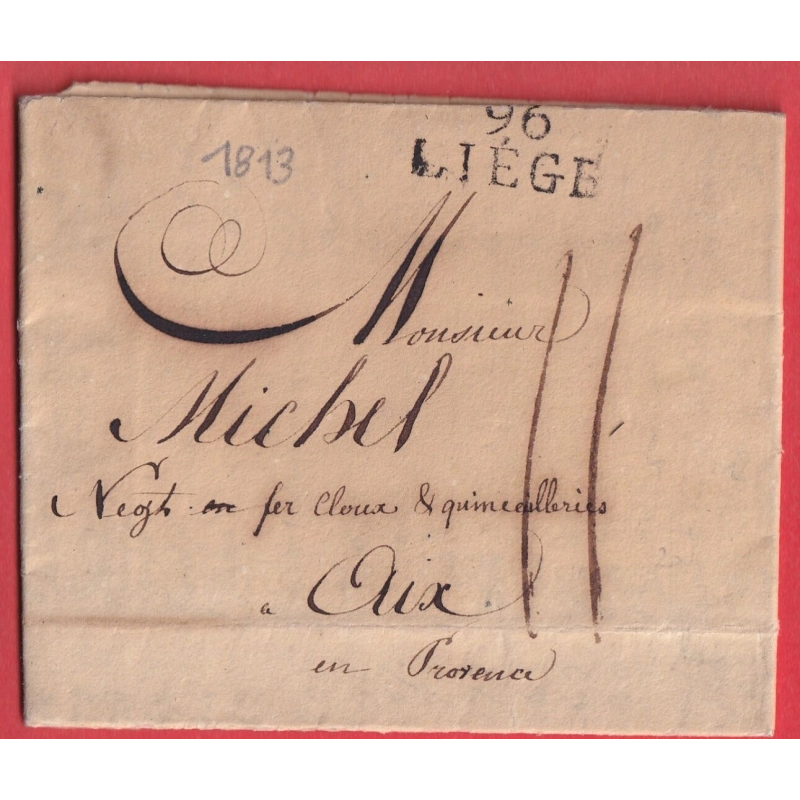 96
LIÉGE
1813
Monsieur
Michel
Negt. en fer Cloux & quincailleries
11
a Aix
en Provence